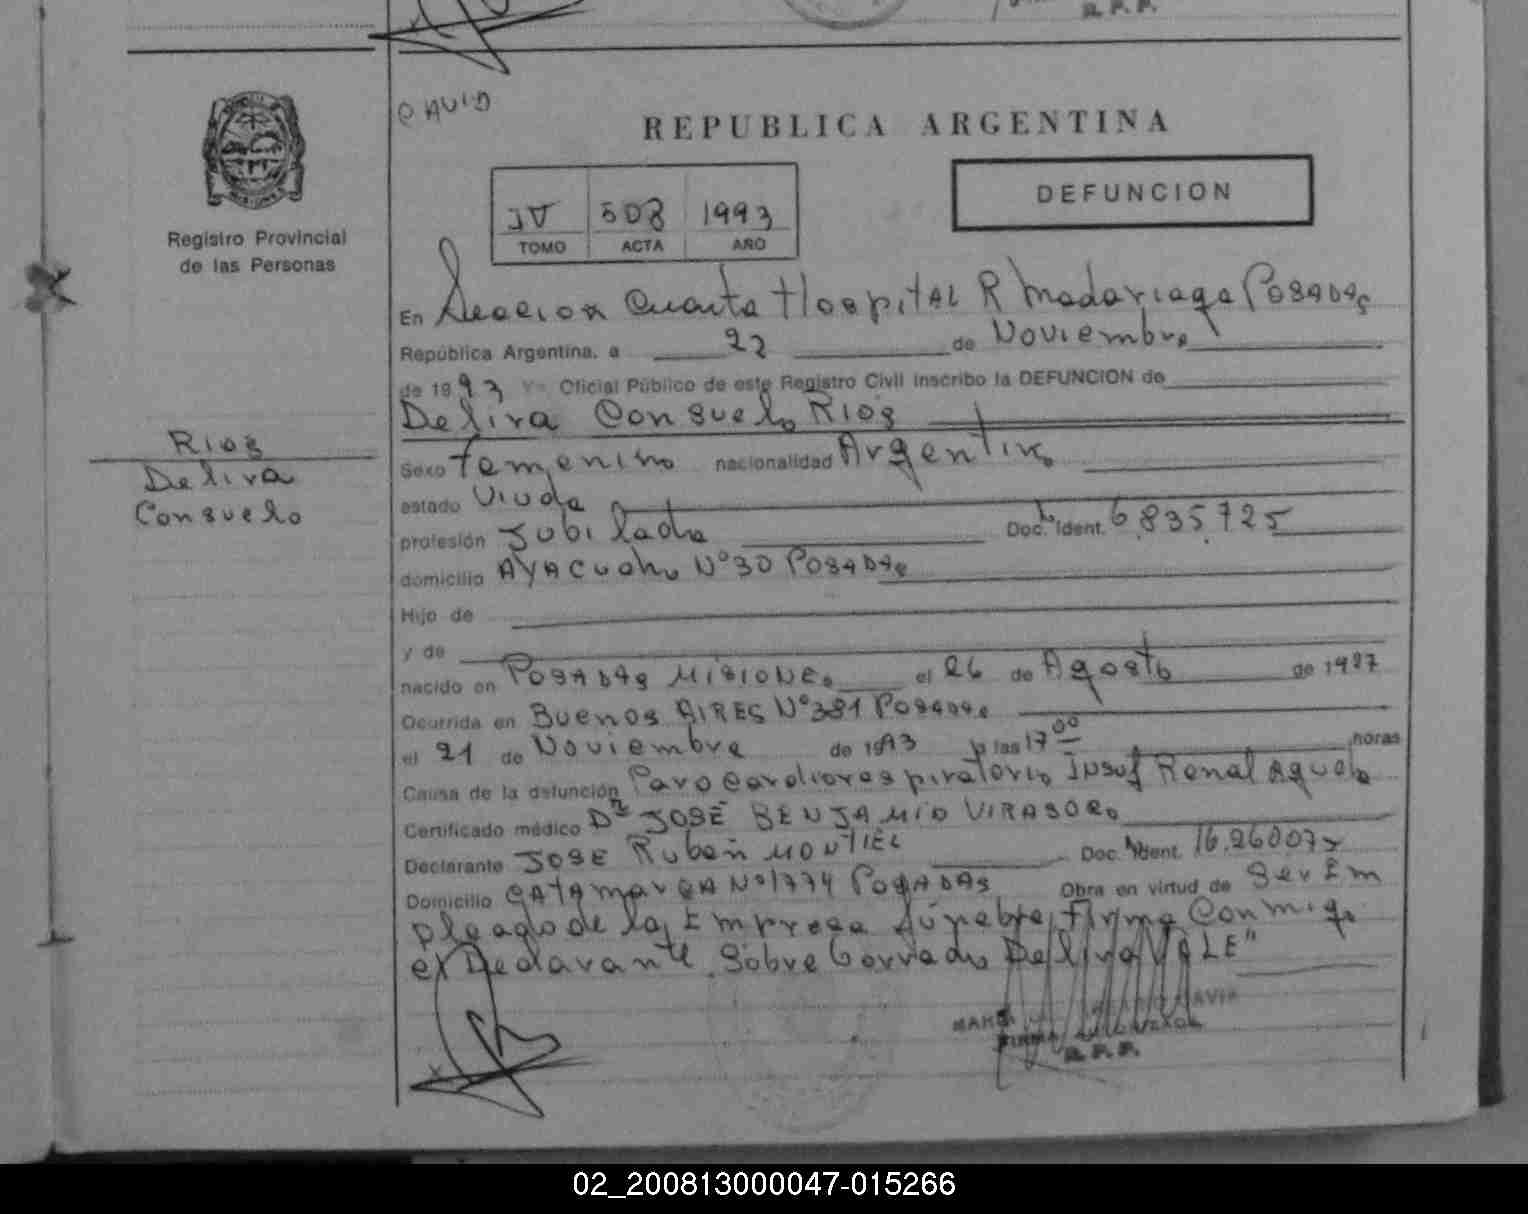 DAVID
REPUBLICA ARGENTINA
Registro Provincial
de las Personas
IV 508 1993
TOMO ACTA AÑO
DEFUNCION
En Seccion Cuarta Hospital R Madariaga Posadas
República Argentina, a 22 de Noviembre
de 1993 Yo Oficial Público de este Registro Civil inscribo la DEFUNCION de
Delira Consuelo Rios
Rios
Delira
Consuelo
Sexo femenino nacionalidad Argentina
estado Viuda
profesión Jubilada Doc. Ident. 6.835.725
domicilio AYACucho Nº30 POSADAS
Hijo de
y de
nacido en POSADAS MISIONES el 26 de Agosto de 1927
Ocurrida en BUENOS AIRES Nº381 POSADAS
el 21 de Noviembre de 1993 a las 17 00 horas
Causa de la defunción Paro Cardiorespiratorio Insuf Renal Aguda
Certificado médico Dr JOSÉ BENJAMIN VIRASORO
Declarante JOSE Ruben MONTIEL Doc. Ident. 16.26007
Domicilio CATAMARCA Nº1774 POSADAS Obra en virtud de Ser Em
pleado de la Empresa fúnebre, firma Conmigo
el Declarante. Sobre borrado Delira VALE"
R. P. P.
02_200813000047-015266